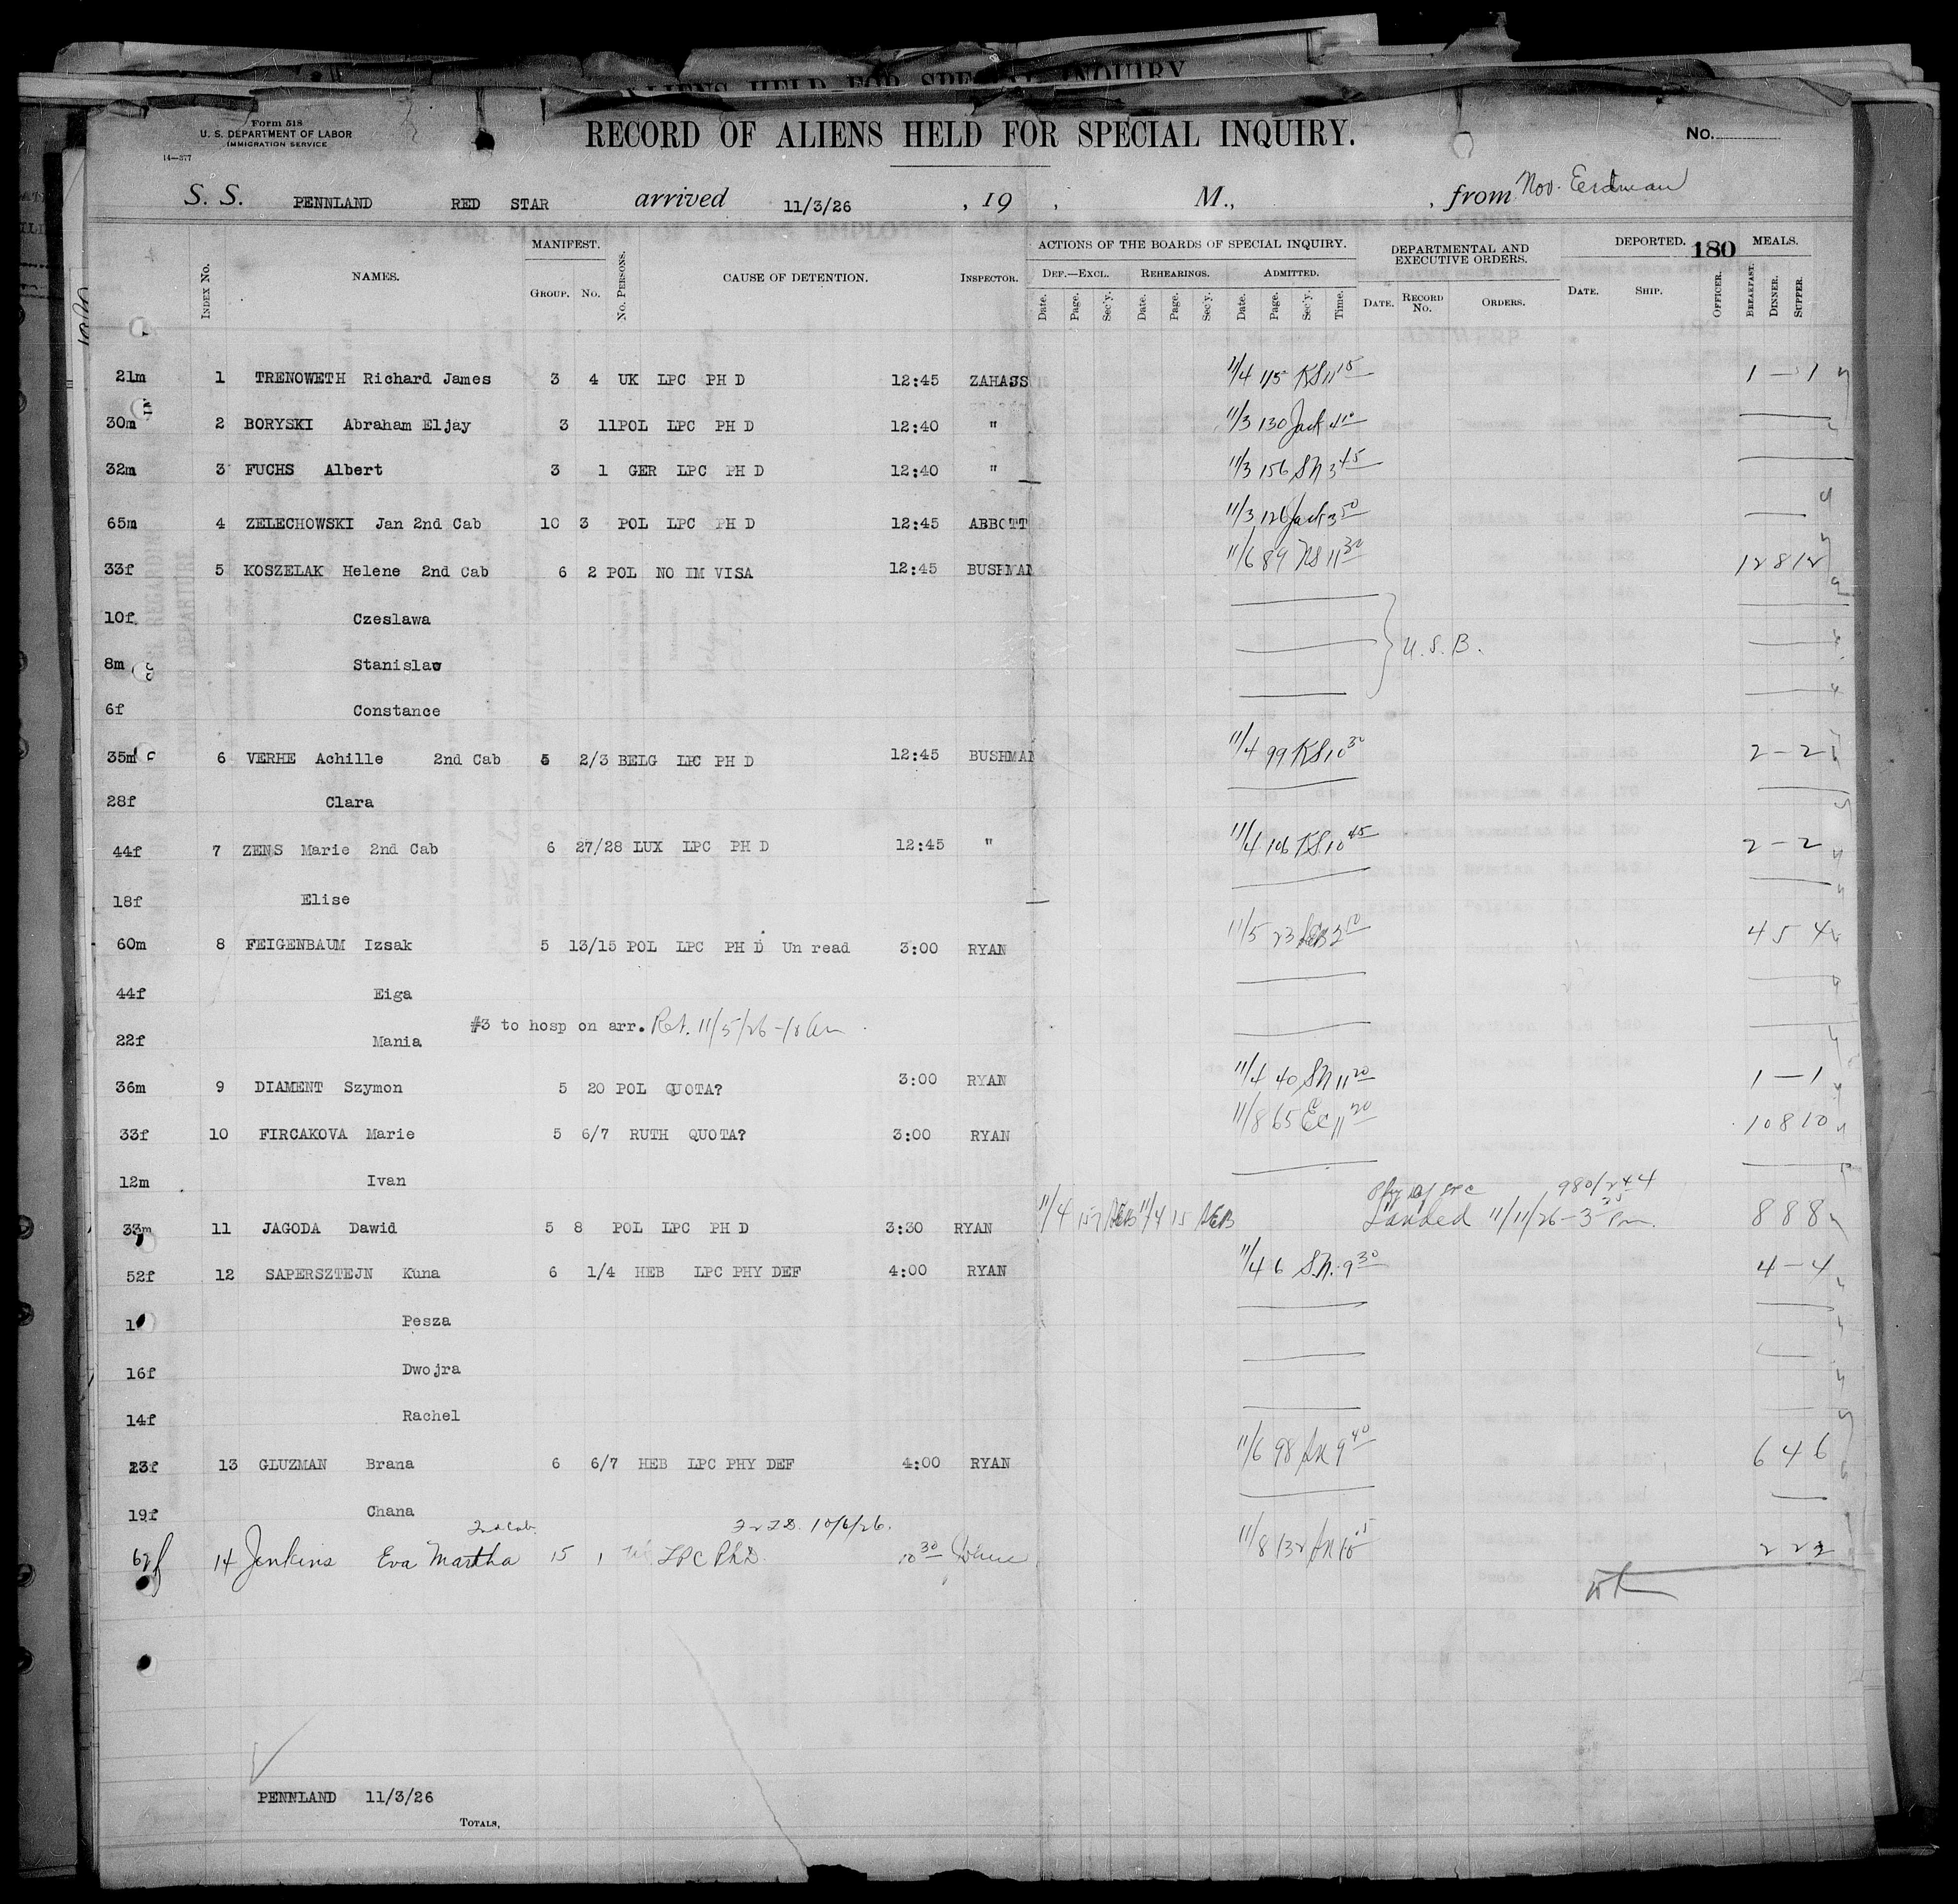 ALIENS HELD FOR SPECIAL INQUIRY
Form 518
U. S. DEPARTMENT OF LABOR
IMMIGRATION SERVICE
14—377
RECORD OF ALIENS HELD FOR SPECIAL INQUIRY.
No.
S. S. PENNLAND RED STAR arrived 11/3/26, 19 , M., , from Nov. Eerdman
INDEX No. NAMES. MANIFEST. GROUP. No. No. PERSONS. CAUSE OF DETENTION. INSPECTOR. ACTIONS OF THE BOARDS OF SPECIAL INQUIRY. DEF.—EXCL. REHEARINGS. ADMITTED. DEPARTMENTAL AND EXECUTIVE ORDERS. DEPORTED. 180 MEALS.
Date. Page. Sec'y. Date. Page. Sec'y. Date. Page. Sec'y. Time. DATE. RECORD No. ORDERS. DATE. SHIP. OFFICER. BREAKFAST. DINNER. SUPPER.
21m 1 TRENOWETH Richard James 3 4 UK LPC PH D 12:45 ZAHAJSS 11/4 115 KS 11 15 1 — 1
30m 2 BORYSKI Abraham Eljay 3 11 POL LPC PH D 12:40 " 11/3 130 Jack 4 10
32m 3 FUCHS Albert 3 1 GER LPC PH D 12:40 " 11/3 156 SN 3 45
65m 4 ZELECHOWSKI Jan 2nd Cab 10 3 POL LPC PH D 12:45 ABBOTT 11/3 126 Jack 3 50
33f 5 KOSZELAK Helene 2nd Cab 6 2 POL NO IM VISA 12:45 BUSHMAN 11/6 89 KS 11 30 12 8 12
10f Czeslawa
8m Stanislaw U. S. B.
6f Constance
35m 6 VERHE Achille 2nd Cab 5 2/3 BELG LPC PH D 12:45 BUSHMAN 11/4 99 KS 10 30 2 — 2
28f Clara
44f 7 ZENS Marie 2nd Cab 6 27/28 LUX LPC PH D 12:45 " 11/4 106 KS 10 45 2 — 2
18f Elise
60m 8 FEIGENBAUM Izsak 5 13/15 POL LPC PH D Un read 3:00 RYAN 11/5 23 4 5 4
44f Eiga
#3 to hosp on arr. Ret. 11/5/26 — 10 am
22f Mania
36m 9 DIAMENT Szymon 5 20 POL QUOTA? 3:00 RYAN 11/4 40 SN 11 20 1 — 1
33f 10 FIRCAKOVA Marie 5 6/7 RUTH QUOTA? 3:00 RYAN 11/8 65 EC 11 20 10 8 10
12m Ivan
980/244
33m 11 JAGODA Dawid 5 8 POL LPC PH D 3:30 RYAN 11/4 157 11/4 15 Landed 11/11/26 — 3 Pm. 8 8 8
52f 12 SAPERSZTEJN Kuna 6 1/4 HEB LPC PHY DEF 4:00 RYAN 11/4 6 S.N. 9 30 4 — 4
Pesza
16f Dwojra
14f Rachel
23f 13 GLUZMAN Brana 6 6/7 HEB LPC PHY DEF 4:00 RYAN 11/6 98 9 40 6 4 6
19f Chana
2nd Cab. 10/6/26.
62f 14 Jenkins Eva Martha 15 1 LPC PhD 10 30 11/8 132 2 2 2
PENNLAND 11/3/26
TOTALS,